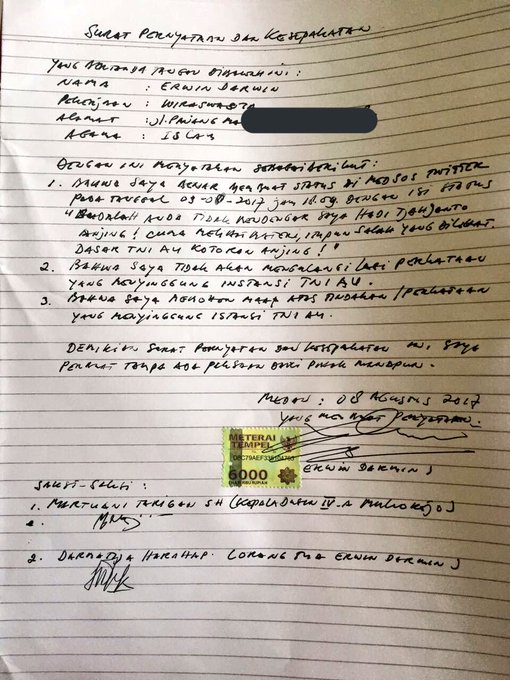 SURAT PERNYATAAN DAN KESEPAKATAN
YANG BERTANDA TANGAN DIBAWAH INI :
NAMA : ERWIN DARWIN
PEKERJAAN : WIRASWASTA
ALAMAT : Jl. PAJANG
AGAMA : ISLAM
DENGAN INI MENYATAKAN SEBAGAI BERIKUT :
1. BAHWA SAYA BENAR MEMBUAT STATUS DI MEDSOS TWITTER
PADA TANGGAL 03-08-2017 jam 18.09. DENGAN ISI STATUS
" ANDA TIDAK MENDENGAR SAYA HADI TJAHJANTO
ANJING! CUMA MELIHAT, ITUPUN SALAH YANG DILIHAT.
DASAR TNI AU KOTORAN ANJING!"
2. BAHWA SAYA TIDAK AKAN MENGULANGI LAGI PERKATAAN
YANG MENYINGGUNG INSTANSI TNI AU.
3. BAHWA SAYA MEMOHON MAAF ATAS TINDAKAN / PERKATAAN
YANG MENYINGGUNG ISTANSI TNI AU.
DEMIKIAN SURAT PERNYATAAN DAN KESEPAKATAN INI SAYA
PERBUAT TANPA ADA PAKSAAN DARI PIHAK MANAPUN.
MEDAN : 08 AGUSTUS 2017
YANG MEMBUAT PERNYATAAN.
METERAI
TEMPEL
6000
ENAM RIBU RUPIAH
ERWIN DARWIN )
SAKSI-SAKSI :
1. MARTUANI TARIGAN SH (KEPALA DUSUN IV-A MULIOREJO)
2. HARAHAP (ORANG TUA ERWIN DARWIN)